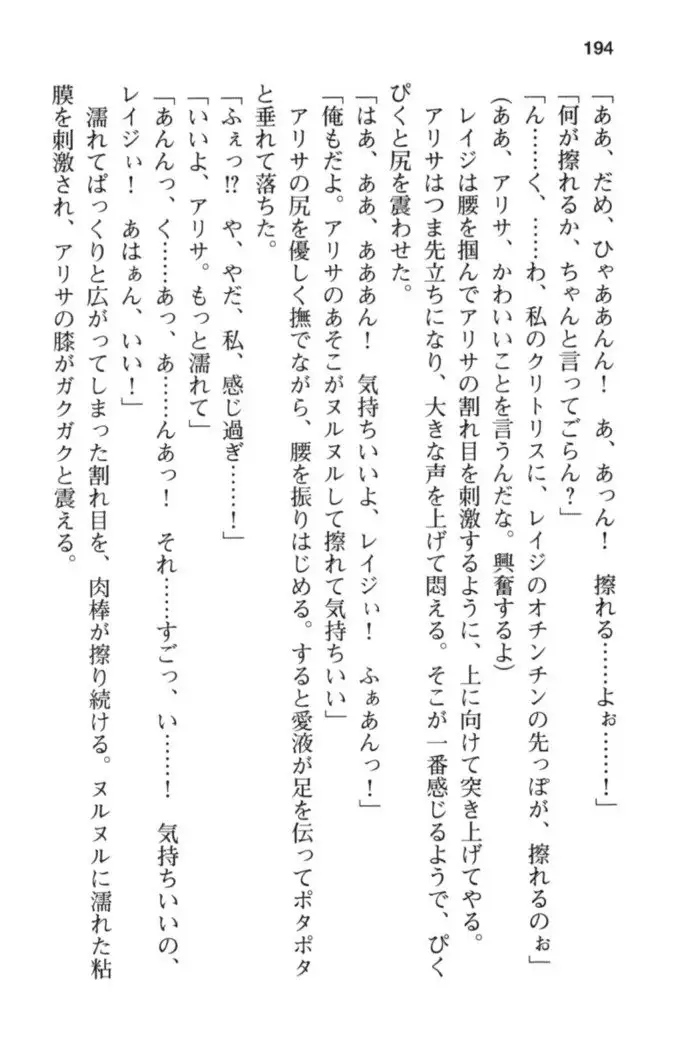 194
「ああ、だめ、ひゃああんん！　あ、あっん！　擦れる……よぉ……！」
「何が擦れるか、ちゃんと言ってごらん？」
「ん……く、……わ、私のクリトリスに、レイジのオチンチンの先っぽが、擦れるのぉ」
(ああ、アリサ、かわいいことを言うんだな。興奮するよ)
レイジは腰を掴んでアリサの割れ目を刺激するように、上に向けて突き上げてやる。
アリサはつま先立ちになり、大きな声を上げて悶える。そこが一番感じるようで、ぴく
ぴくと尻を震わせた。
「はあ、ああ、あああん！　気持ちいいよ、レイジぃ！　ふぁあんっ！」
「俺もだよ。アリサのあそこがヌルヌルして擦れて気持ちいい」
アリサの尻を優しく撫でながら、腰を振りはじめる。すると愛液が足を伝ってポタポタ
と垂れて落ちた。
「ふぇっ!?　や、やだ、私、感じ過ぎ……！」
「いいよ、アリサ。もっと濡れて」
「あんんっ、く……あっ、あ……んあっ！　それ……すごっ、い……！　気持ちいいの、
レイジぃ！　あはぁん、いい！」
濡れてぱっくりと広がってしまった割れ目を、肉棒が擦り続ける。ヌルヌルに濡れた粘
膜を刺激され、アリサの膝がガクガクと震える。